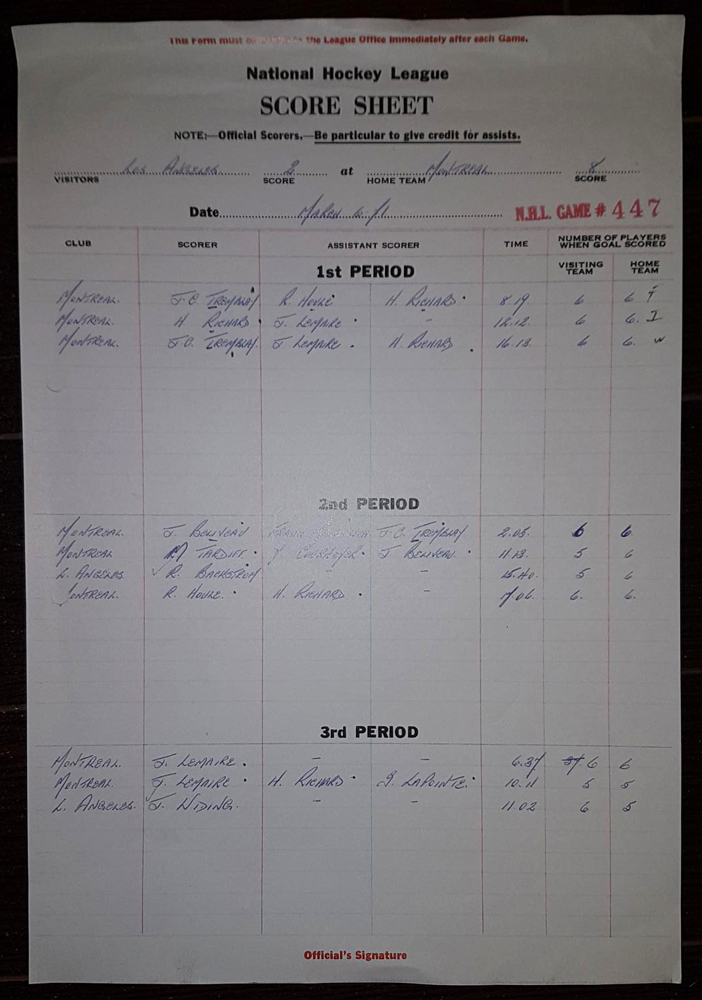 This Form must be the League Office immediately after each Game.
National Hockey League
SCORE SHEET
NOTE:—Official Scorers.—Be particular to give credit for assists.
Los Angeles 2 at Montreal 8
VISITORS SCORE HOME TEAM SCORE
Date March 6/71 N.H.L. GAME # 447
CLUB SCORER ASSISTANT SCORER TIME NUMBER OF PLAYERS WHEN GOAL SCORED
VISITING TEAM HOME TEAM
1st PERIOD
Montreal. J.C. Tremblay R. Houle H. Richard. 8 19 6 6
Montreal. H. Richard. J. Lemaire. - 12.12. 6 6. I
Montreal. J.C. Tremblay. J Lemaire. H. Richard. 16.13. 6 6. W
2nd PERIOD
Montreal. J. Beliveau J.C. Tremblay 2.05. 6 6
Montreal M Tardiff. Y Cournoyer. J Beliveau. 11 13. 5 6
L. Angeles √ R. Backstrom - - 15.40. 5 6
Montreal. R. Houle. H. Richard. - 17 06. 6. 6.
3rd PERIOD
Montreal. J. Lemaire. - - 6.37 6 6
Montreal. J. Lemaire. H. Richard. G. Lapointe. 10.11 5 5
L. Angeles. √ J. Widing. - - 11.02 6 5
Official's Signature